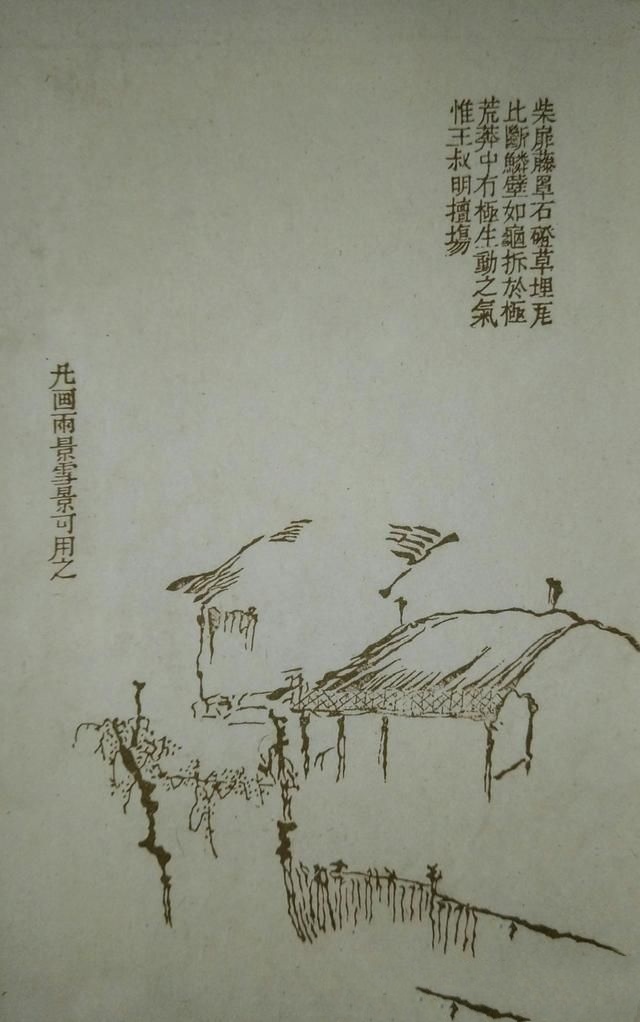 柴扉藤罩石磴草埋瓦
比斷鱗壁如龜拆於極
荒莽中有極生動之氣
惟王叔明擅塲
凡画雨景雪景可用之